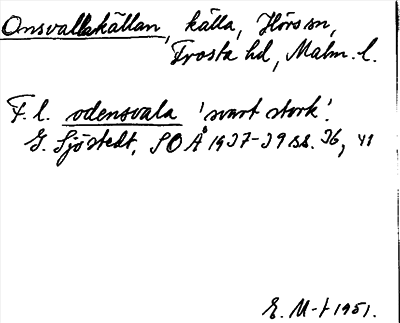 Onsvallakällan, källa, Hörs sn,
Frosta hd, Malm. l.
F. l. odensvala 'svart stork'.
G. Sjöstedt, SOÅ 1937-39 ss. 36, 41
E. M-t 1951.